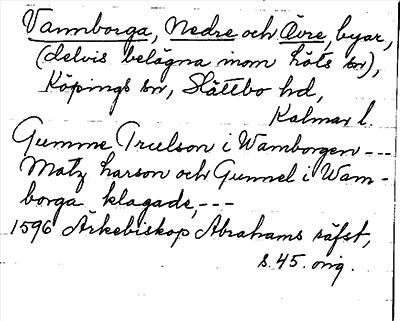 Vannborga, Nedre och Övre, byar,
(delvis belägna inom Löts sn),
Köpings sn, Slättbo hd,
Kalmar l.
Gumme Truelson i Wamborgen ---
Matz harson och Gunnel i Wam-
borga klagade, ---
1596 Ärkebiskop Abrahams räfst,
s. 45. orig.